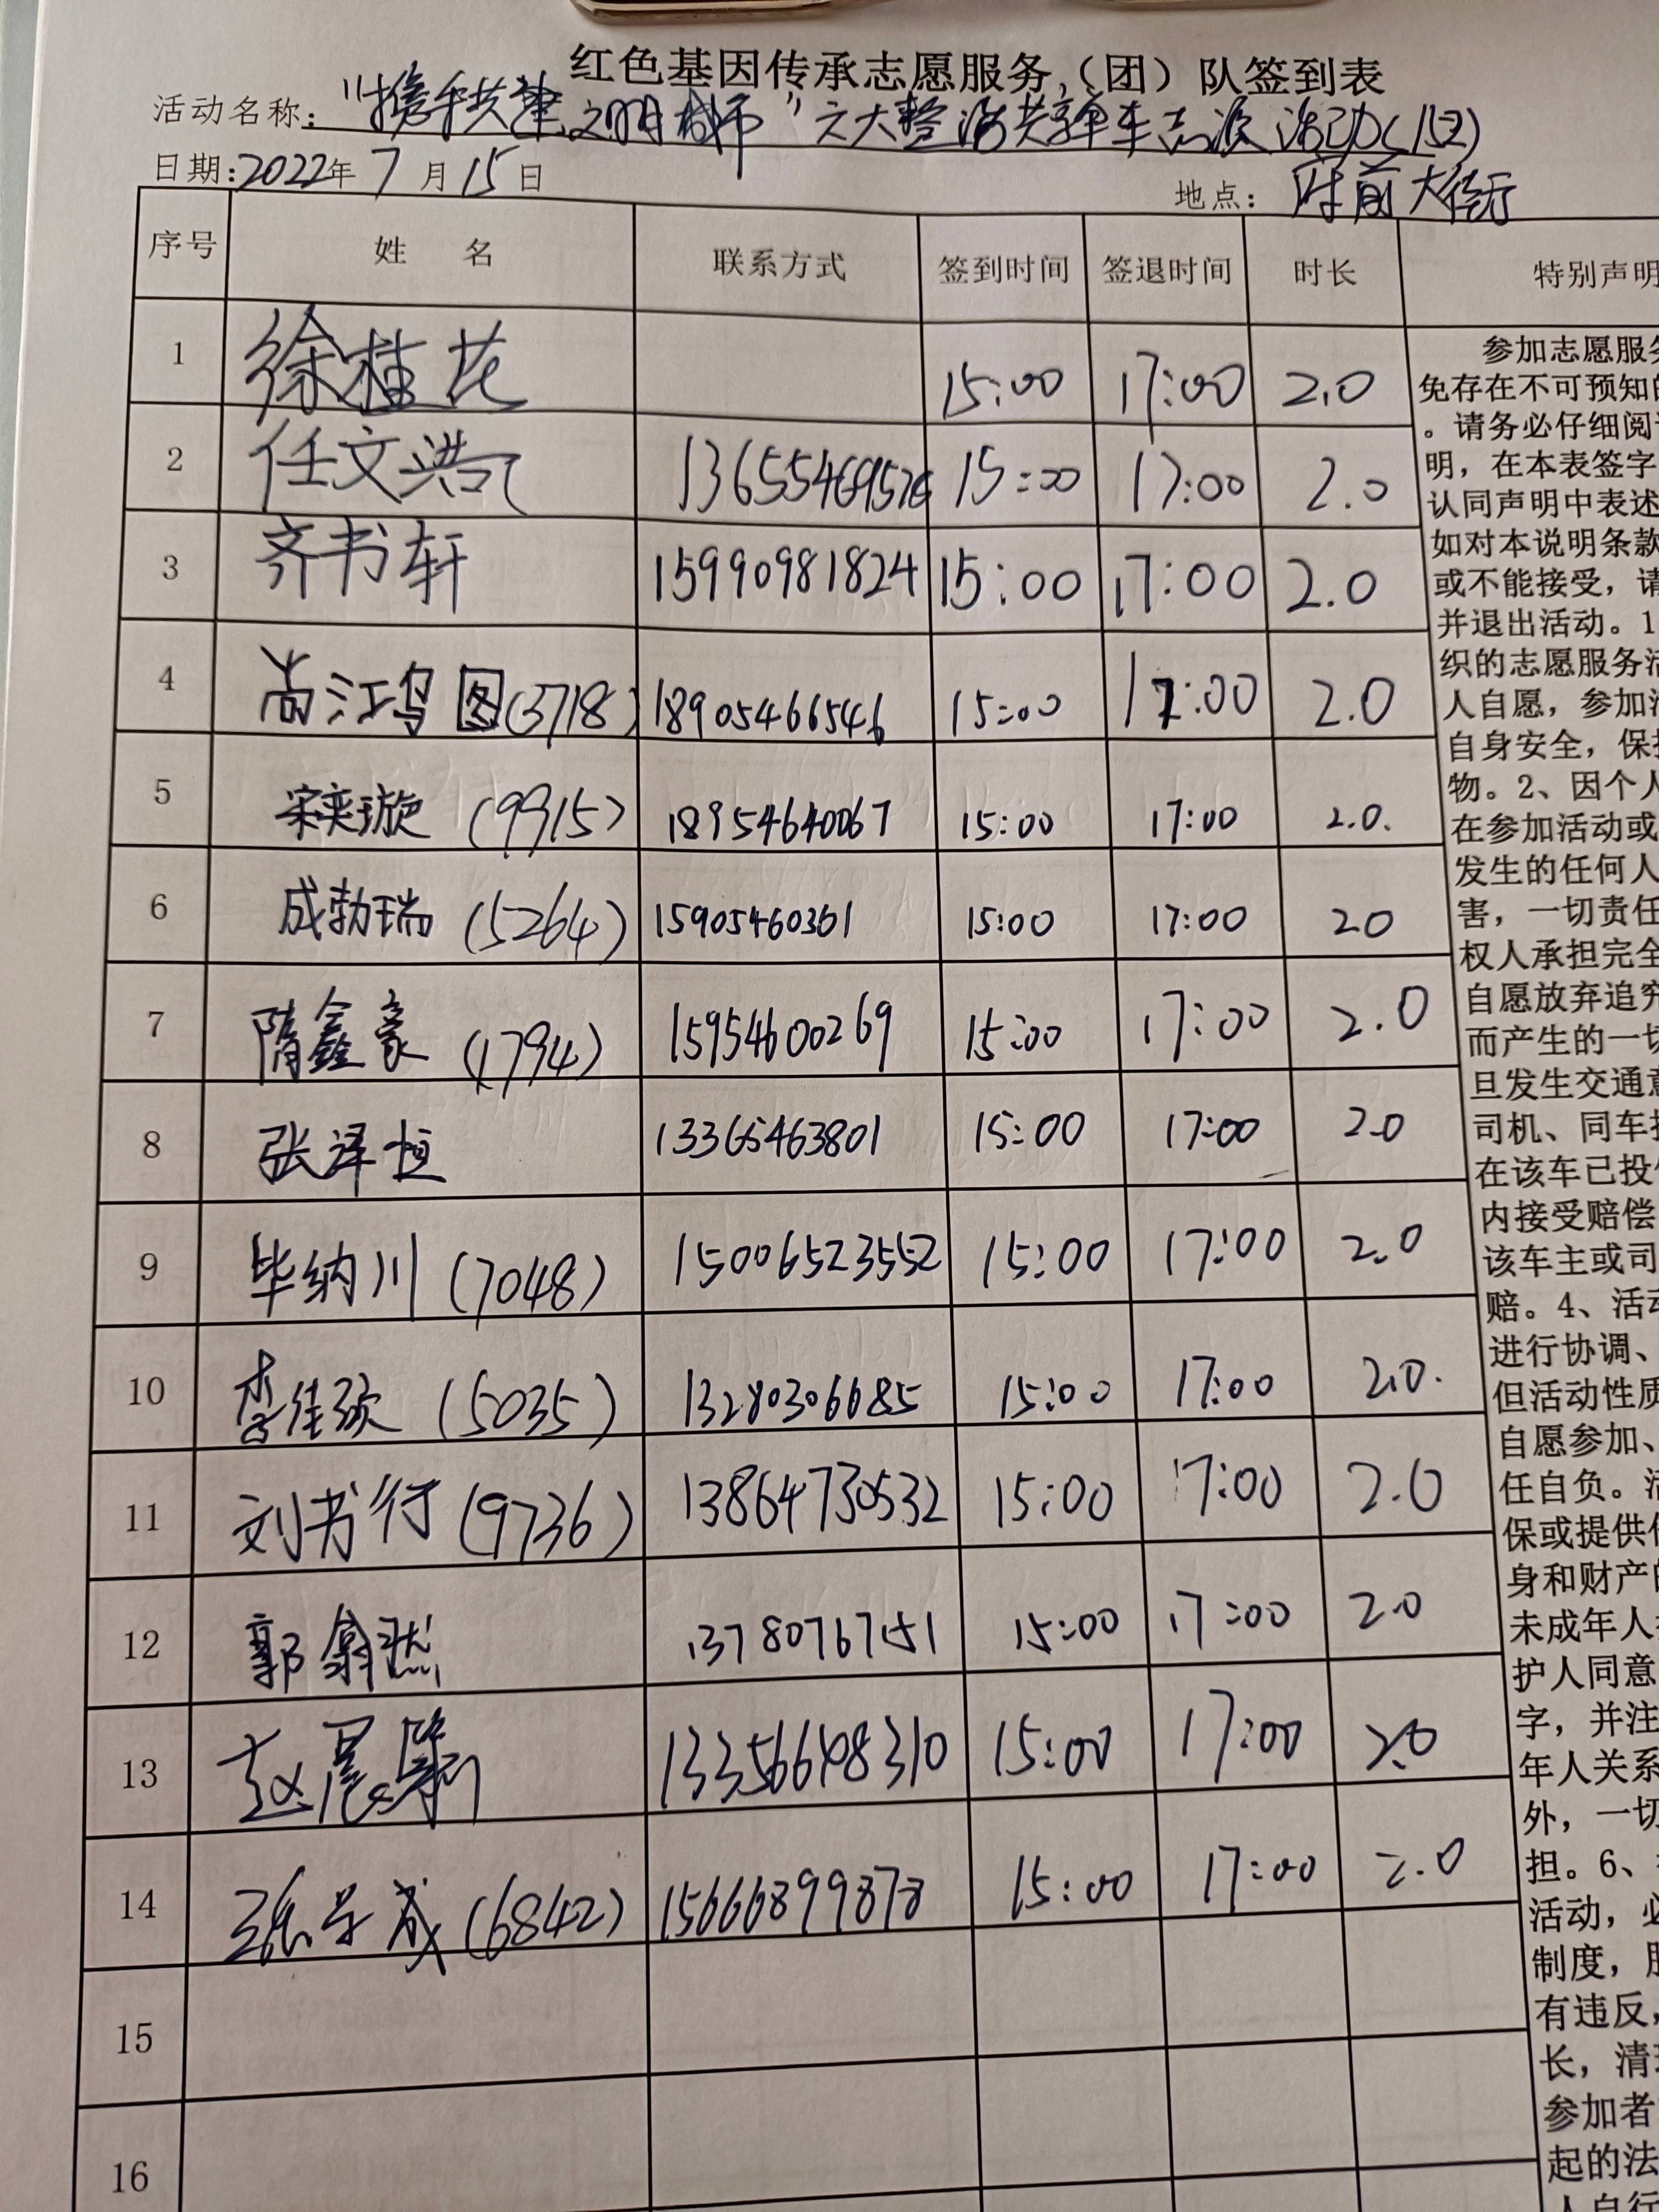 红色基因传承志愿服务（团）队签到表
活动名称："携手共建文明城市"六大整治共享单车志愿活动(152)
日期:2022年7月15日 地点：府前大街
序号 姓 名 联系方式 签到时间 签退时间 时长 特别声明
1 徐桂花 15:00 17:00 2.0
2 任文淇 13655469576 15:00 17:00 2.0
3 齐书轩 15990981824 15:00 17:00 2.0
4 尚江鸿图(3718) 18905466546 15:00 17:00 2.0
5 宋奕璇 (9915) 18954640067 15:00 17:00 2.0.
6 成勃瑞 (5264) 15905460301 15:00 17:00 20
7 隋鑫豪 (1794) 15954600269 15:00 17:00 2.0
8 张泽恒 13365463801 15:00 17:00 2.0
9 毕纳川 (7048) 15006523552 15:00 17:00 2.0
10 李佳颐 (5035) 13280306685 15:00 17:00 2.0.
11 刘书行 (9736) 13864730532 15:00 17:00 2.0
12 郭 然 13780767151 15:00 17:00 2.0
13 赵 15:00 17:00 2.0
14 (6842) 15666899878 15:00 17:00 2.0
15
16
参加志愿服务
免存在不可预知的
。请务必仔细阅
明，在本表签字
认同声明中表述
如对本说明条款
或不能接受，请
并退出活动。1
织的志愿服务活
人自愿，参加活
自身安全，保
物。2、因个人
在参加活动或
发生的任何人
害，一切责任
权人承担完全
自愿放弃追究
而产生的一切
旦发生交通意
司机、同车
在该车已投
内接受赔偿
该车主或司
赔。4、活动
进行协调、
但活动性质
自愿参加、
任自负。活
保或提供
身和财产的
未成年人
护人同意
字，并注
年人关系
外，一切
担。6、
活动，必
制度，服
有违反，
长，清
参加者
起的法
人自行